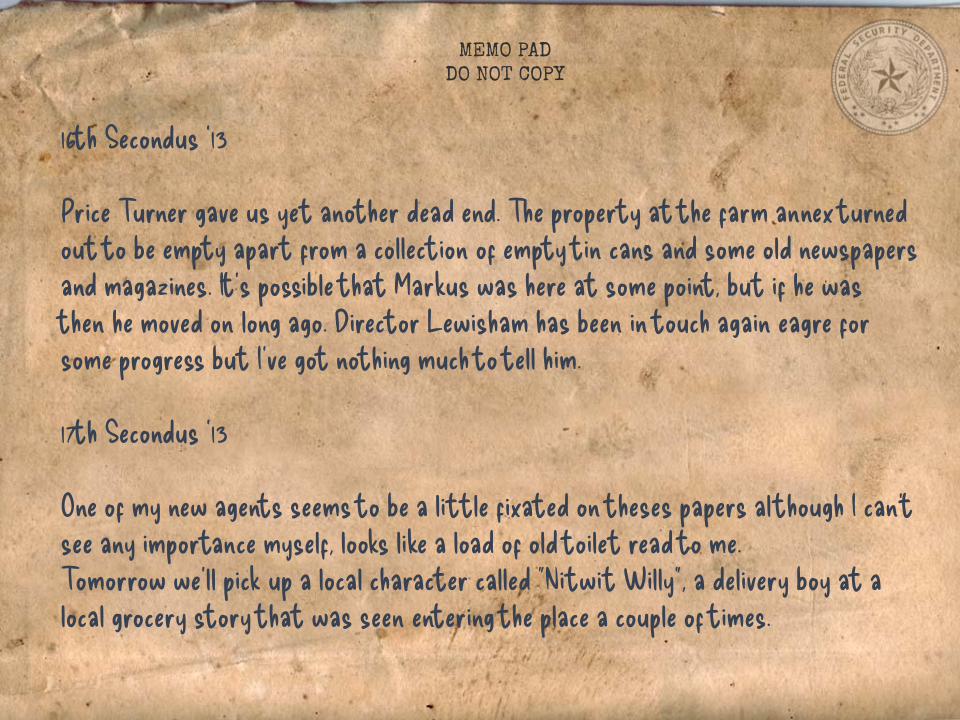 MEMO PAD
DO NOT COPY
FEDERAL SECURITY DEPARTMENT
16th Secondus '13
Price Turner gave us yet another dead end. The property at the farm annex turned
out to be empty apart from a collection of empty tin cans and some old newspapers
and magazines. It's possible that Markus was here at some point, but if he was
then he moved on long ago. Director Lewisham has been in touch again eagre for
some progress but I've got nothing much to tell him.
17th Secondus '13
One of my new agents seems to be a little fixated on theses papers although I can't
see any importance myself, looks like a load of old toilet read to me.
Tomorrow we'll pick up a local character called "Nitwit Willy", a delivery boy at a
local grocery story that was seen entering the place a couple of times.